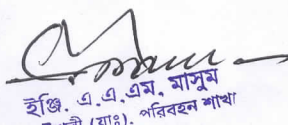 ইঞ্জি. এ.এ.এম. মাসুম
(যাঃ). পরিবহন শাখা